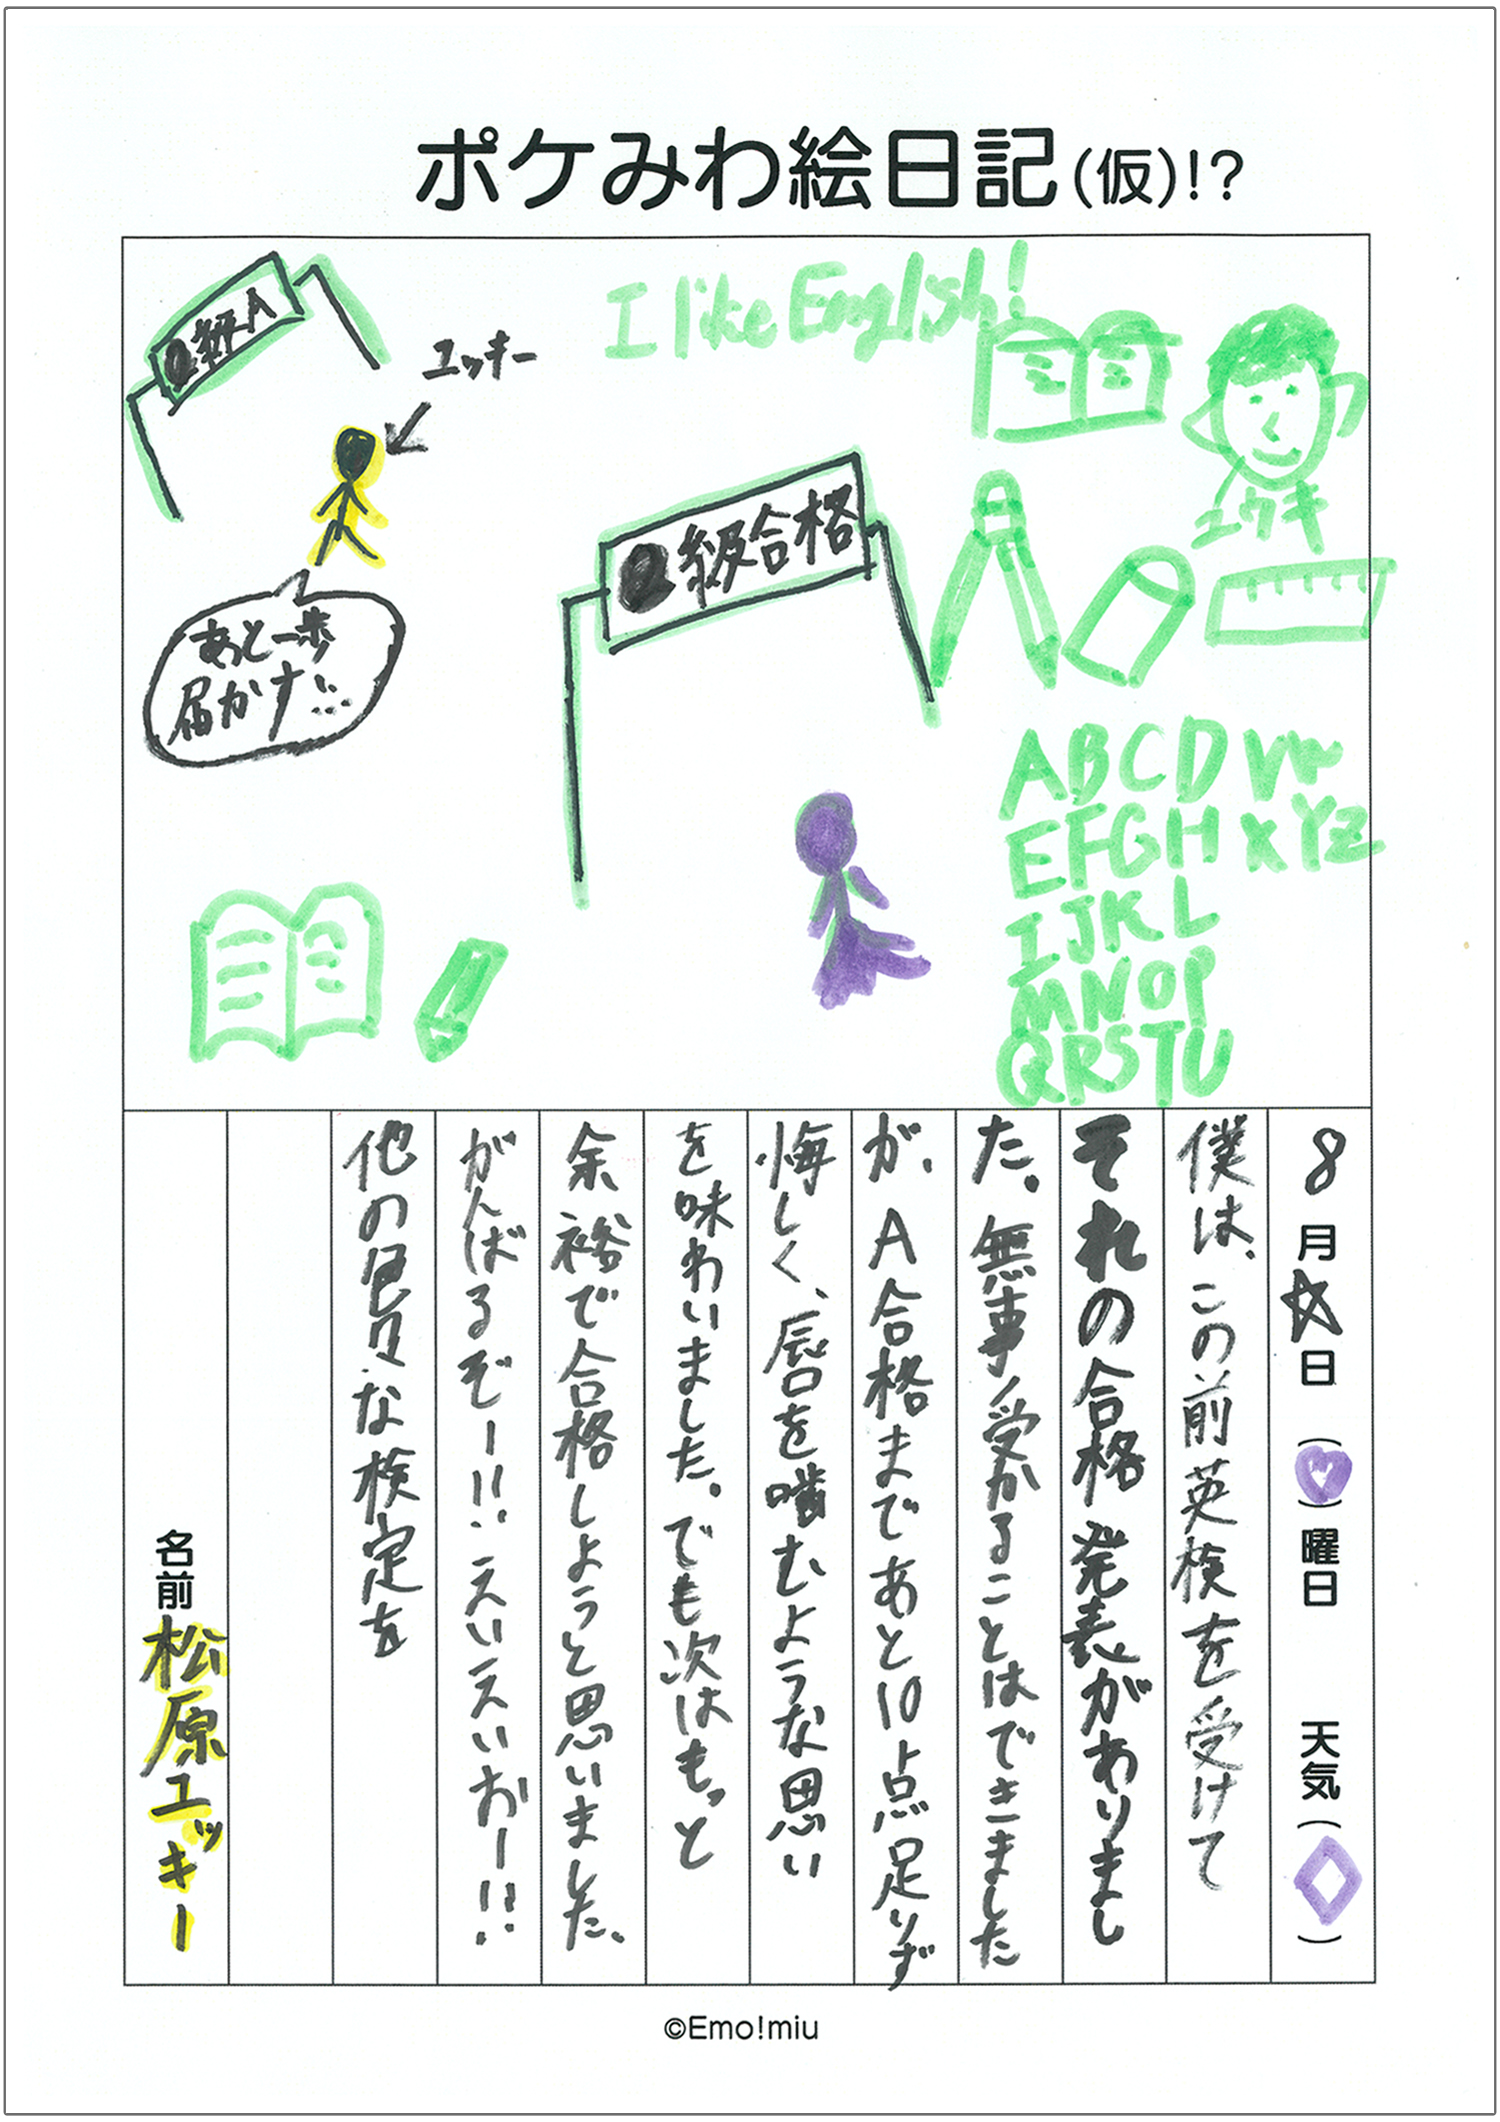 ポケみわ絵日記(仮)!?
級A
ユッキー
あと一歩
届かず…
I like English!
級合格
ユウキ
ABCD VW
EFGH XYZ
IJKL
MNOP
QRSTU
8月☆日(♡)曜日 天気(◇)
僕は、この前英検を受けて
それの合格発表がありまし
た。無事受かることはできました
が、A合格まであと10点足りず
悔しく、唇を噛むような思い
を味わいました。でも次はもっと
余裕で合格しようと思いました。
がんばるぞー!!えいえいおー!!
他の色々な検定を
名前 松原ユッキー
©Emo!miu